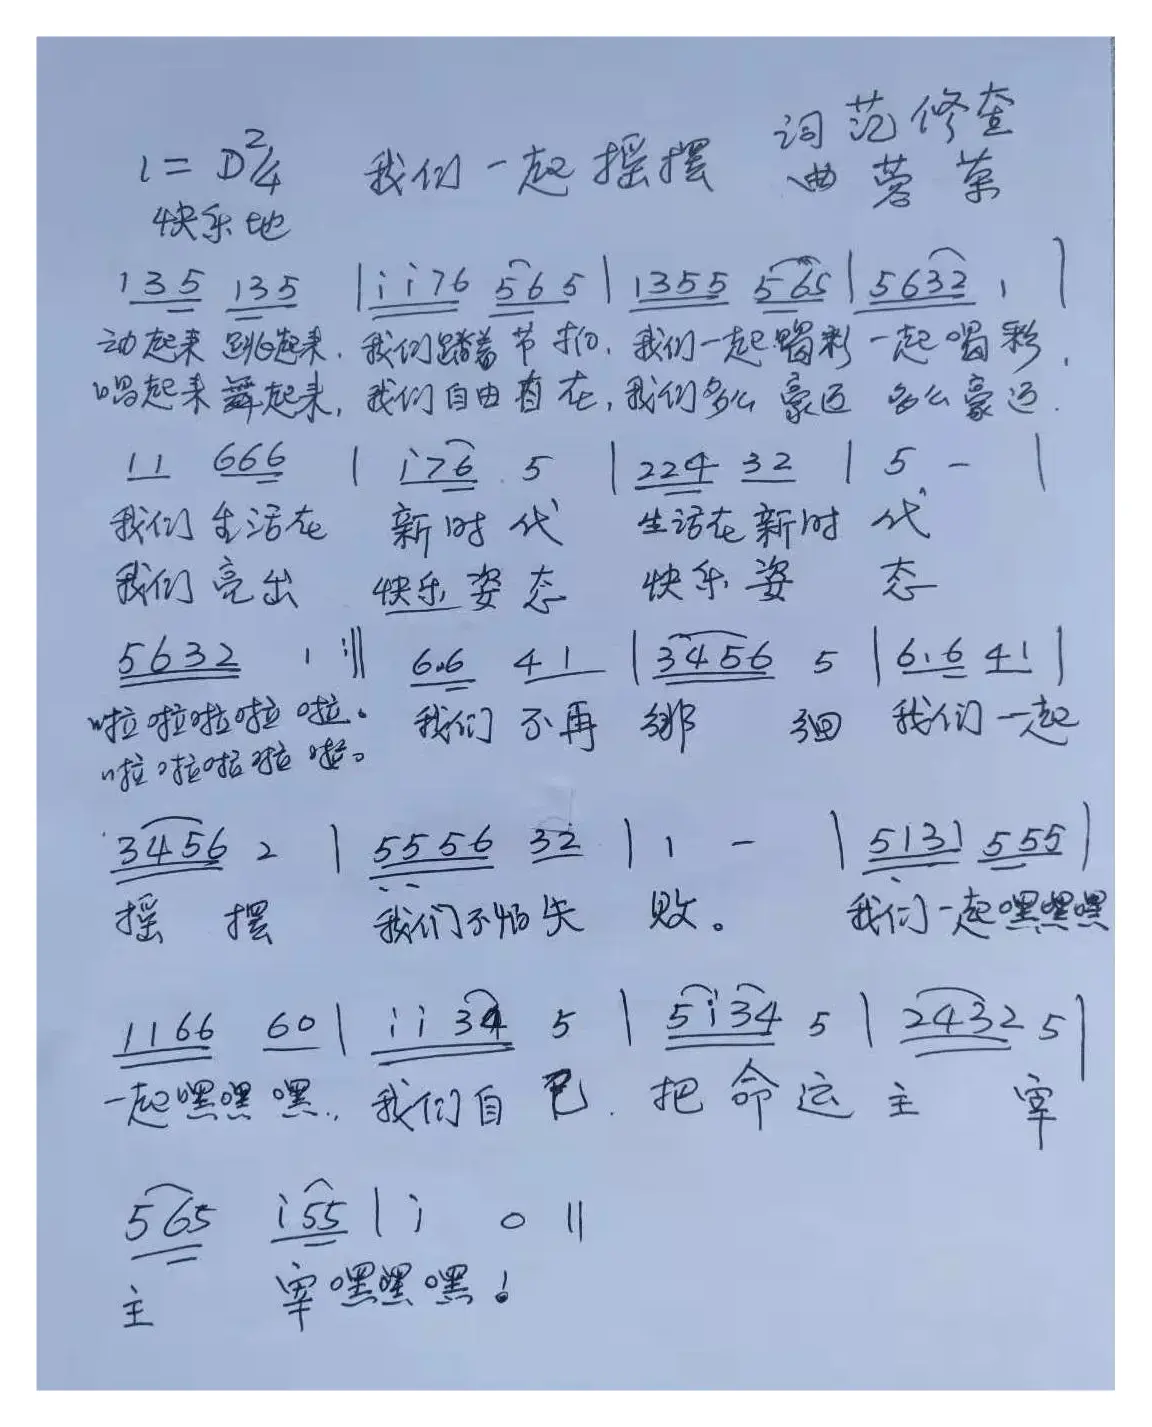 1=D2/4 我们一起摇摆 词 范修奎
快乐地 曲 蓉蓉
135 135 | i i 7 6 5 6 5 | 1355 565 | 5632 1 |
动起来 跳起来. 我们踏着节拍, 我们一起喝彩 一起喝彩,
唱起来 舞起来, 我们自由自在, 我们多么豪迈 多么豪迈.
11 666 | i76 5 | 224 32 | 5 - |
我们 生活在 新时代 生活在新时代
我们 亮出 快乐姿态 快乐姿态
5632 1 :|| 6.6 41 | 3456 5 | 6.6 41 |
啦啦啦啦啦。 我们 不再 徘徊 我们一起
啦啦啦啦啦。
3456 2 | 5556 32 | 1 - | 5131 555 |
摇 摆 我们不怕失 败。 我们一起嘿嘿嘿
1166 60 | i i 34 5 | 5 i 34 5 | 2432 5 |
一起嘿嘿嘿, 我们自己. 把命运主 宰
565 i55 | i 0 ||
主 宰嘿嘿嘿!